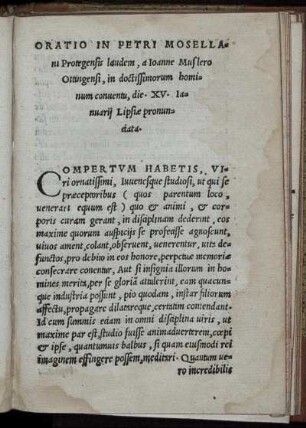 ORATIO IN PETRI MOSELLA-
ni Protegensis laudem, a Ioanne Muslero
Ottingensi, in doctissimorum homi
num conuentu, die XV. Ia-
nuarij Lipsiæ pronun-
data.
COMPERTVM HABETIS, VI
ri ornatissimi, Iuuenesque studiosi, ut qui se
præceptoribus ( quos parentum loco
uenerari equum est ) quo & animi, & cor
poris curam gerant, in disciplinam dederint, eos
maxime quorum auspicijs se profeasse agnoscunt,
uiuos ament, colant, obseruent, uenerentur, uita de
functos, pro debito in eos honore, perpetuæ memoriæ
consecrare conentur, Aut si insignia illorum in ho-
mines merita, per se gloriã attulerint, eam quacun-
que industria possunt, pio quodam, instar filiorum
affectu, propagare dilatareque, certatim contendant.
Id cum summis etiam in omni disciplina uiris, ut
maxime par est, studio fuisse animaduerterem, cœpi
& ipse, quantumuis balbus, si quam eiusmodi rei
imaginem effingere possem, meditari. Quantum ue
ro incredibilis